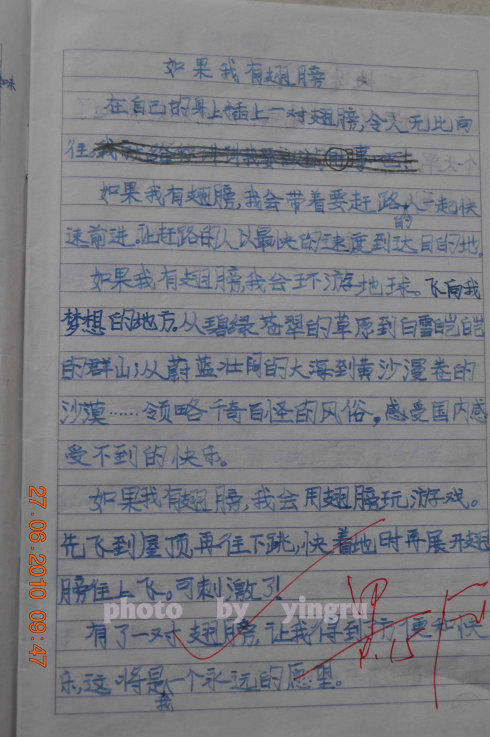 如果我有翅膀
在自己的身上插上一对翅膀,令人无比向
往。
如果我有翅膀,我会带着要赶路的人一起快
速前进。让赶路的人以最快的速度到达目的地。
如果我有翅膀,我会环游地球。飞向我
梦想的地方。从碧绿苍翠的草原到白雪皑皑
的群山;从蔚蓝壮阔的大海到黄沙漫卷的
沙漠……领略千奇百怪的风俗,感受国内感
受不到的快乐。
如果我有翅膀,我会用翅膀玩游戏。
先飞到屋顶,再往下跳,快着地时再展开翅
膀往上飞。可刺激了!
有了一对翅膀,让我得到方便和快
乐,这将是我一个永远的愿望。
27.06.2010 09:47
photo by yingru